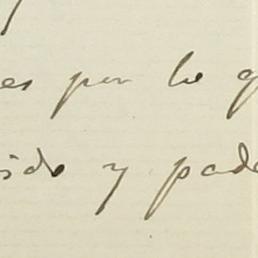 es por lo q
ido y pade